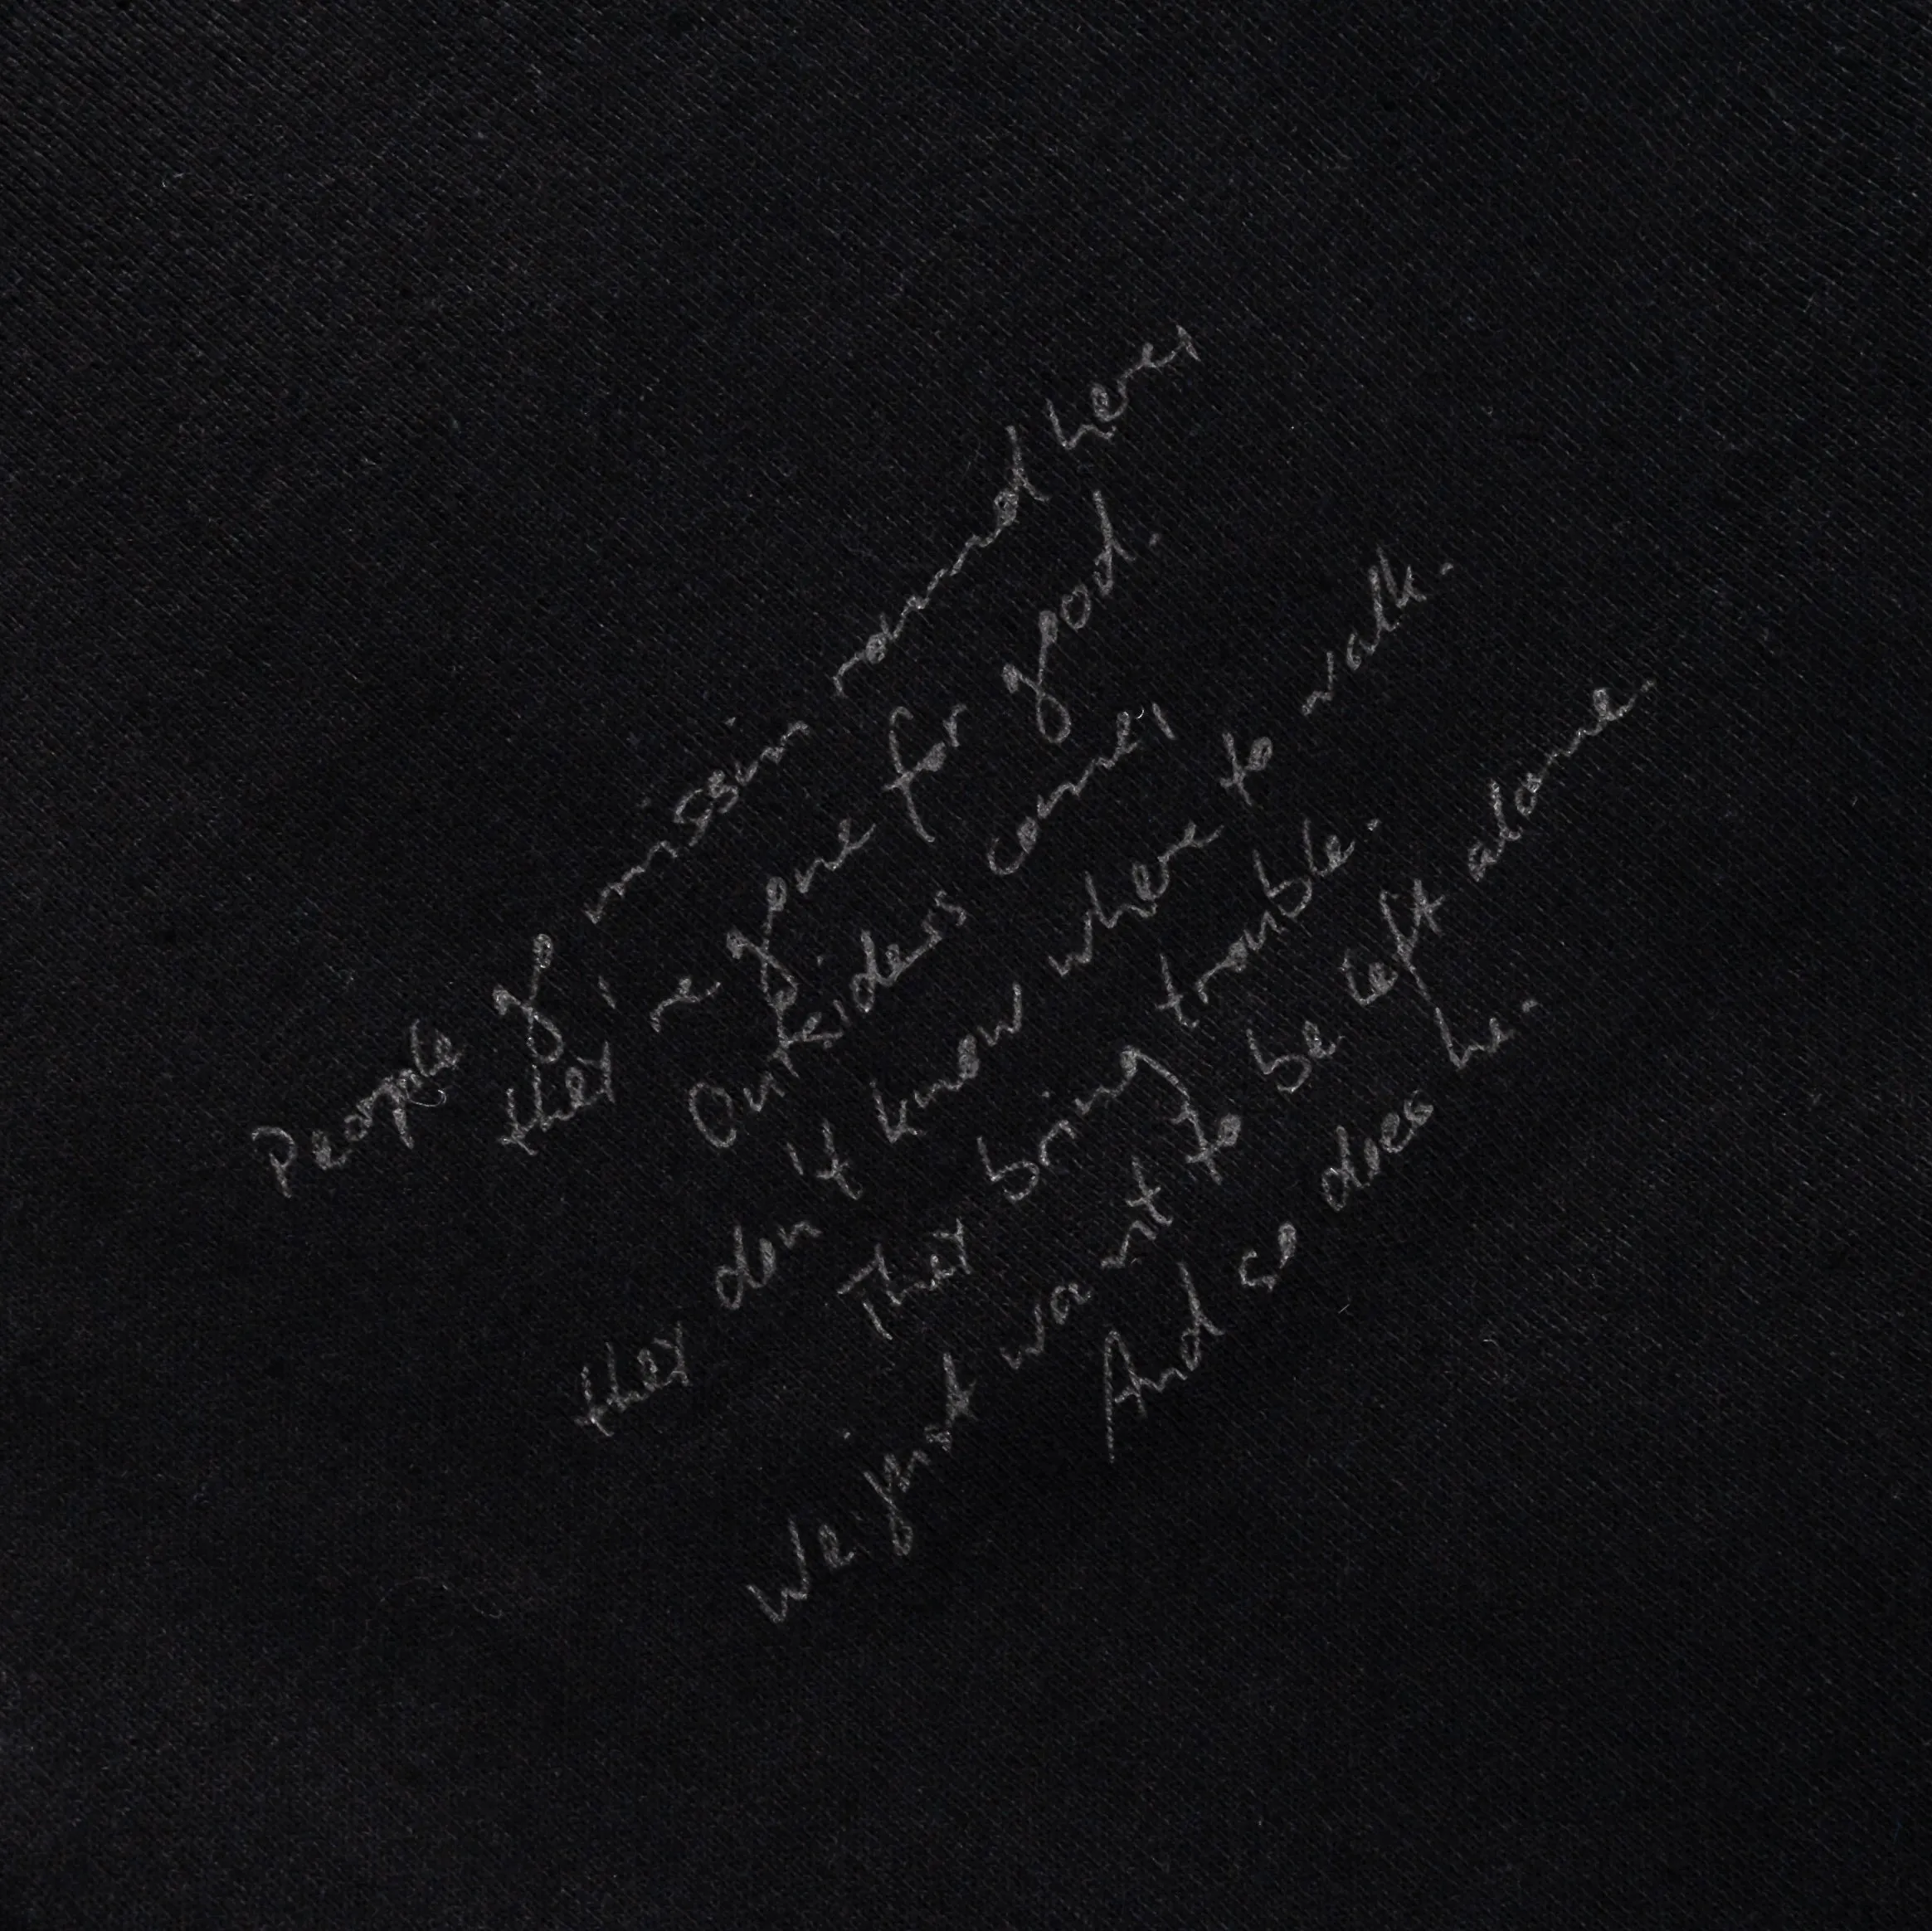 People go missin round here,
they're gone for good.
Outsiders come,
they don't know where to walk.
They bring trouble.
We just want to be left alone.
And so does he.